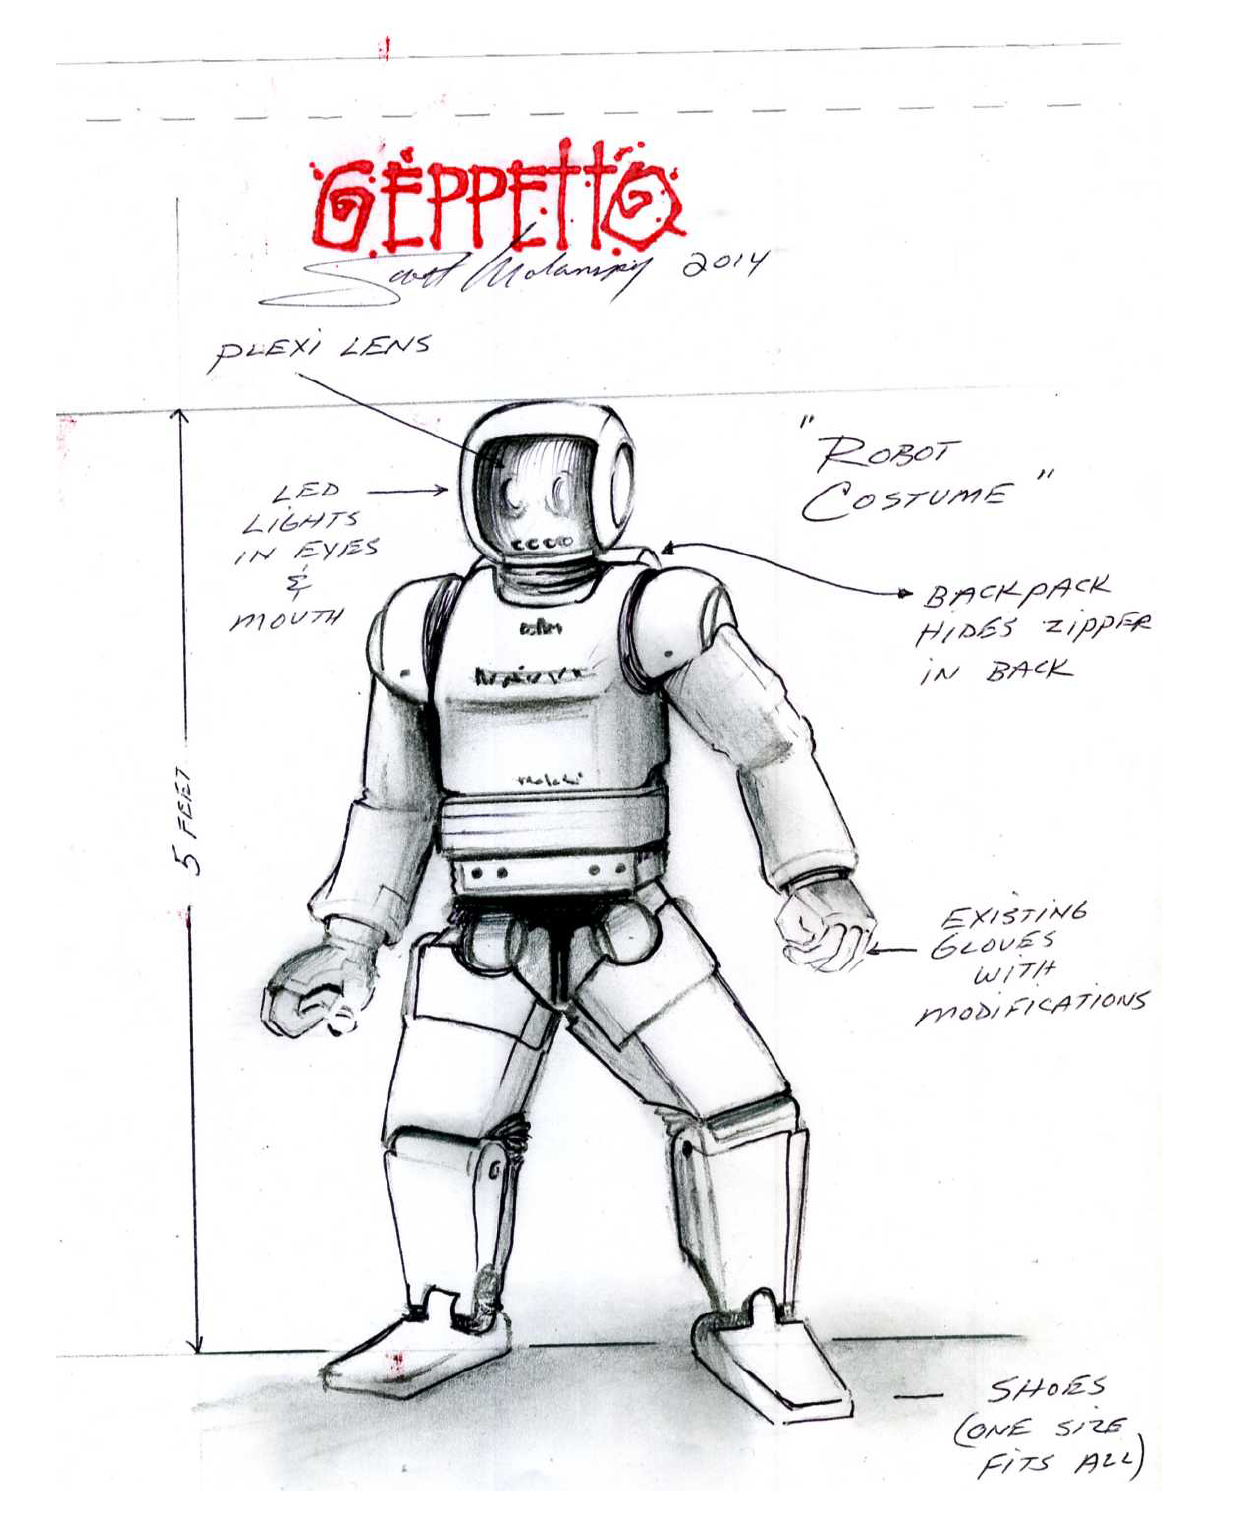 GEPPETTO
Scott 2014
PLEXI LENS
"ROBOT
COSTUME"
LED
LIGHTS
IN EYES
&
MOUTH
BACKPACK
HIDES ZIPPER
IN BACK
5 FEET
EXISTING
GLOVES
WITH
MODIFICATIONS
SHOES
(ONE SIZE
FITS ALL)